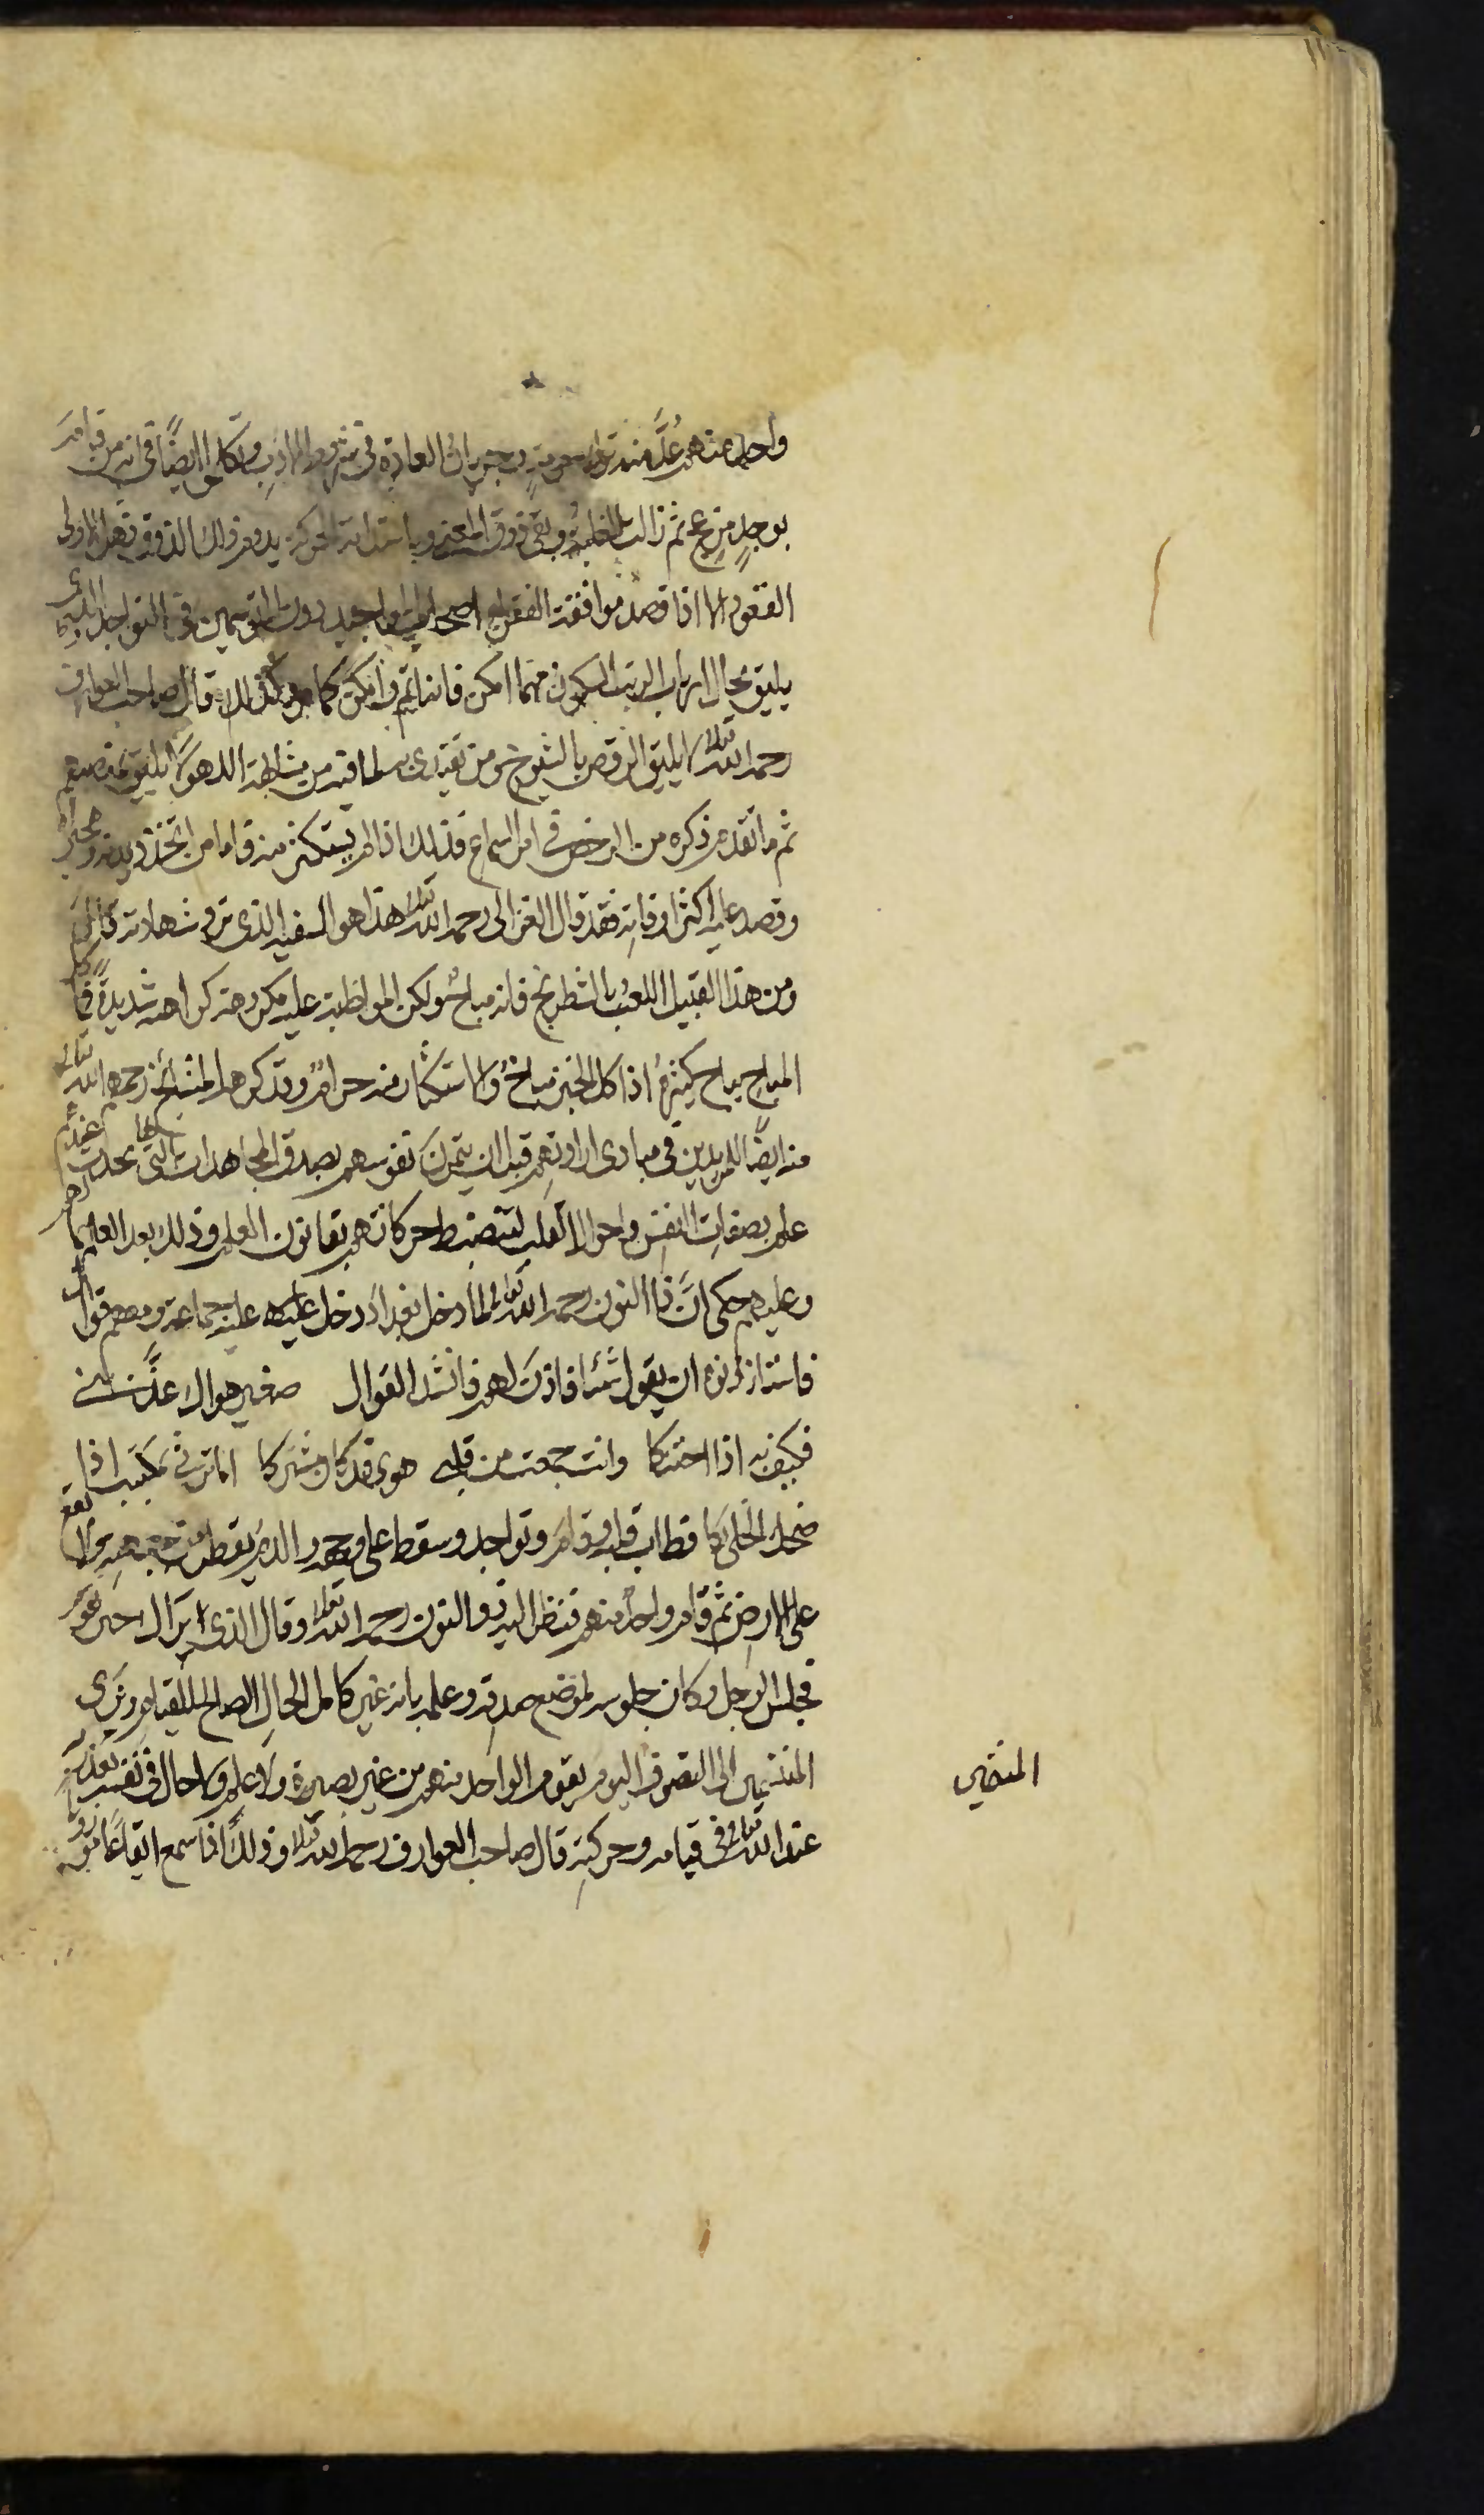 واحد منهم عُدَّ منه بجريان العادة في ايضًا فان من قام
بوجدٍ مزعج ثم زالت الغلبة وبقي ذوق وباستدامة يدوم ذلك الذوق فعل الاولى
القعود الا اذا قصد موافقة الفقراء اصحاب المواجيد دون المتوسمين في التواجد الذي
يليق بحال ارباب الرتب السكون مهما امكن فانه اتم وامكن كما هو كذلك قال صاحب العوارف
رحمه الله تعالى لا يليق الرقص بالشيوخ ومن يقتدى به لما فيه من مشابهة اللهو ولا يليق بمنصبهم
ثم ما تقدم ذكره من الرخص في امر السماع فذلك اذا لم يستكثر منه فاما من اتخذ ديدنه وهجيراه
وقصر عليه اكثر اوقاته فقد قال الغزالى رحمه الله تعالى هذا هو السفيه الذي ترد شهادته قال
ومن هذا القبيل اللعب بالشطرنج فانه مباح ولكن المواظبة عليه مكروهة كراهة شديدةً فما كل
المباح يباح كثيرهُ اذ اكل الخبز مباحٌ والاستكثار منه حرامٌ وقد كره المشائخ رحمهم الله تعالى
منه ايضًا للمريدين في مبادي ارادتهم قبل ان يتمرن نفوسهم بصدق المجاهدات التي يحدث بها عندهم
علم بصفات النفس واحوال القلب لتنضبط حركاتهم بقانون العلم وذلك بعد العلم بما لهم
وعليهم حكي انَّ ذا النون رحمه الله تعالى لما دخل بغداد دخل عليه جماعة ومعهم قوال
فاستاذنوه ان يقول شيئا فاذن لهم فانشد القوال صغير هواك عذَّبني
فكيف به اذا احتنكا وانت جمعت من قلبي هوى قد كان مشتركا اما ترثي لمكتئب اذا
ضحك الخلى بكا فطاب قلبه وقام وتواجد وسقط على وجهه والدم يقطر من جبهته ولا يقع
على الارض ثم قام واحد منهم فنظر اليه ذو النون رحمه الله تعالى وقال الذي يراك حين تقوم
فجلس الرجل وكان جلوسه لموضع صدقه وعلمه بانه غير كامل الحال الصالح للقيام وترى
المنتمين الى التصوف اليوم يقوم الواحد منهم من غير بصيرة ولا علم ولا حال في نفسه يعذر به
عند الله تعالى في قيامه وحركته قال صاحب العوارف رحمه الله تعالى وذلك اذا سمع ايقاعًا موزونًا
المنتمي